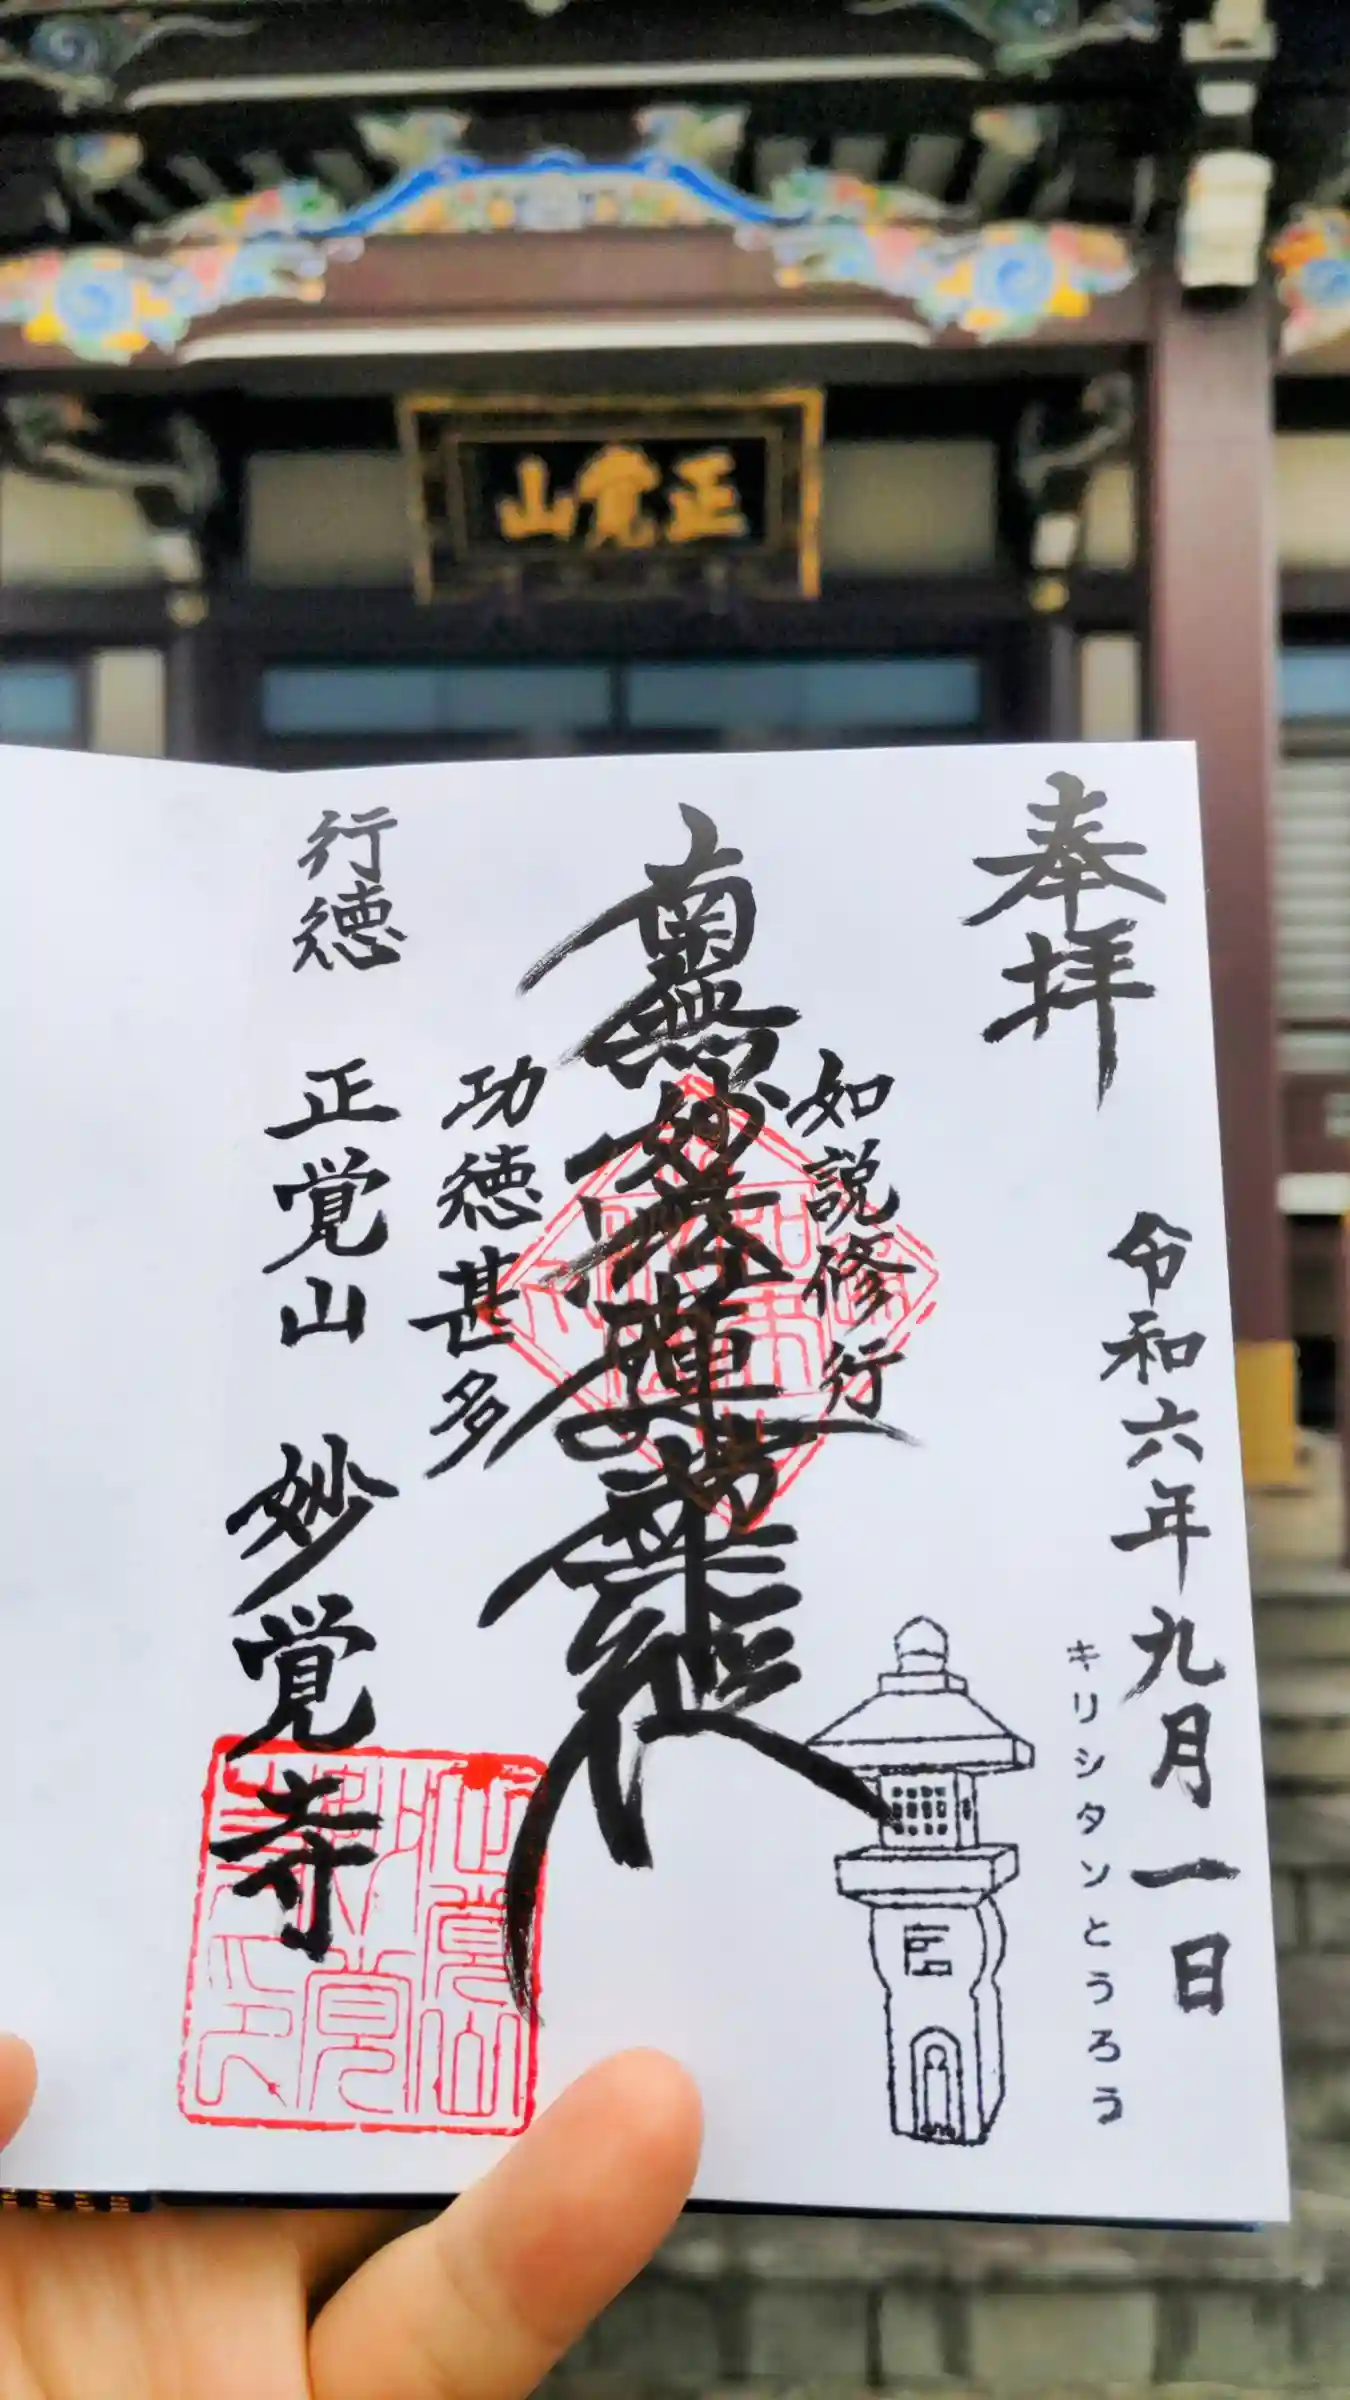 正覚山
奉拝
令和六年九月一日
キリシタンとうろう
如説修行
南無妙法蓮華経
功徳甚多
行徳 正覚山 妙覚寺